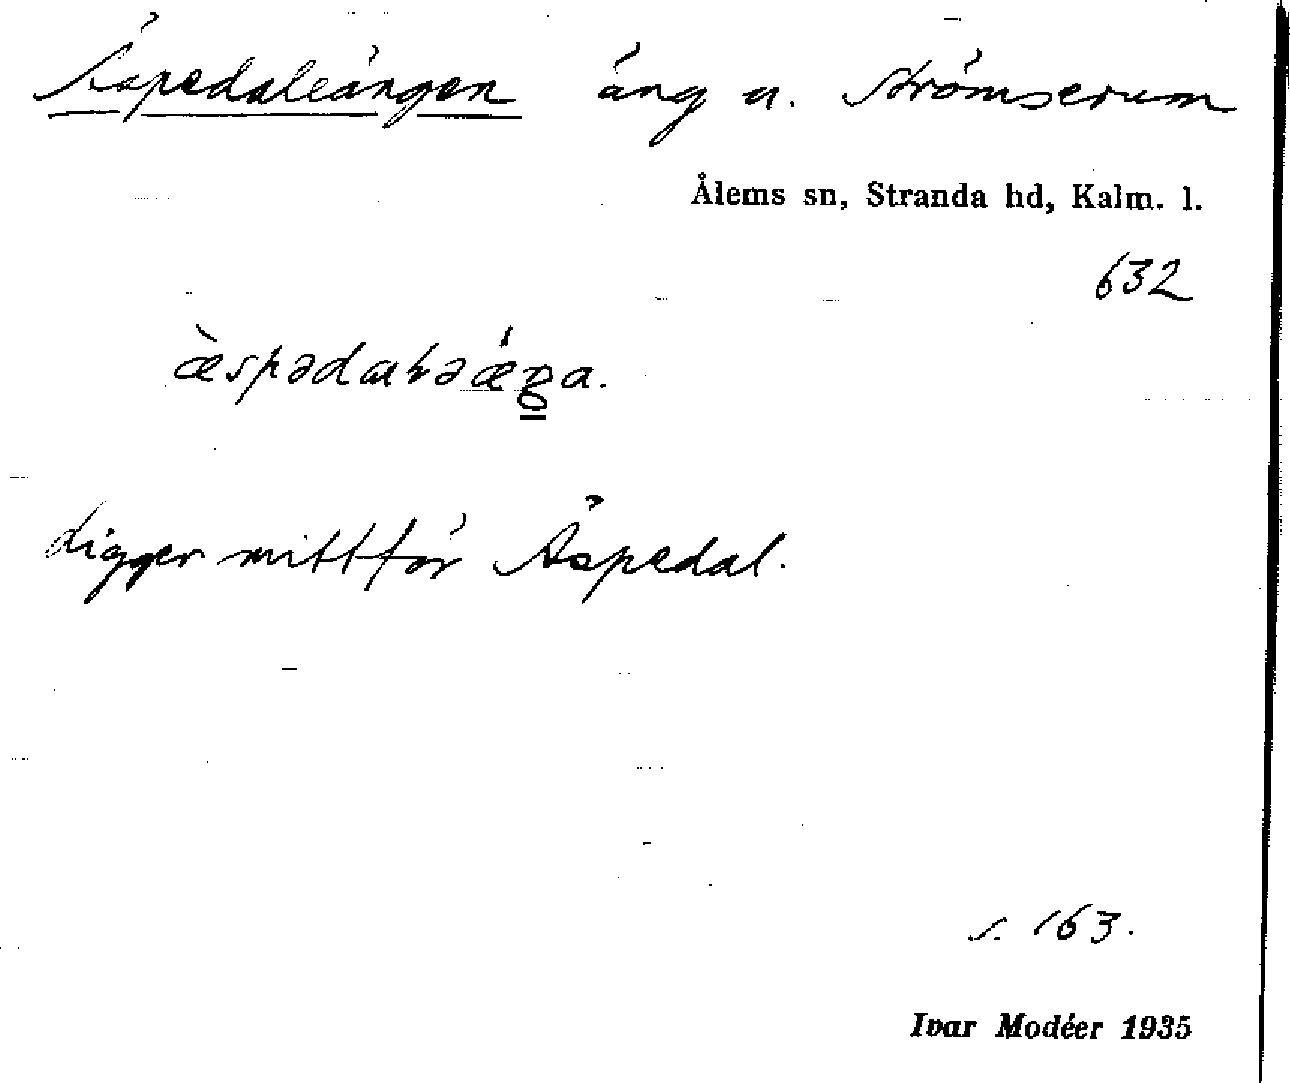 Äspedaleängen äng u. Strömserum
Ålems sn, Stranda hd, Kalm. l.
632
ligger mitt för Äspedal.
s. 163.
Ivar Modéer 1935